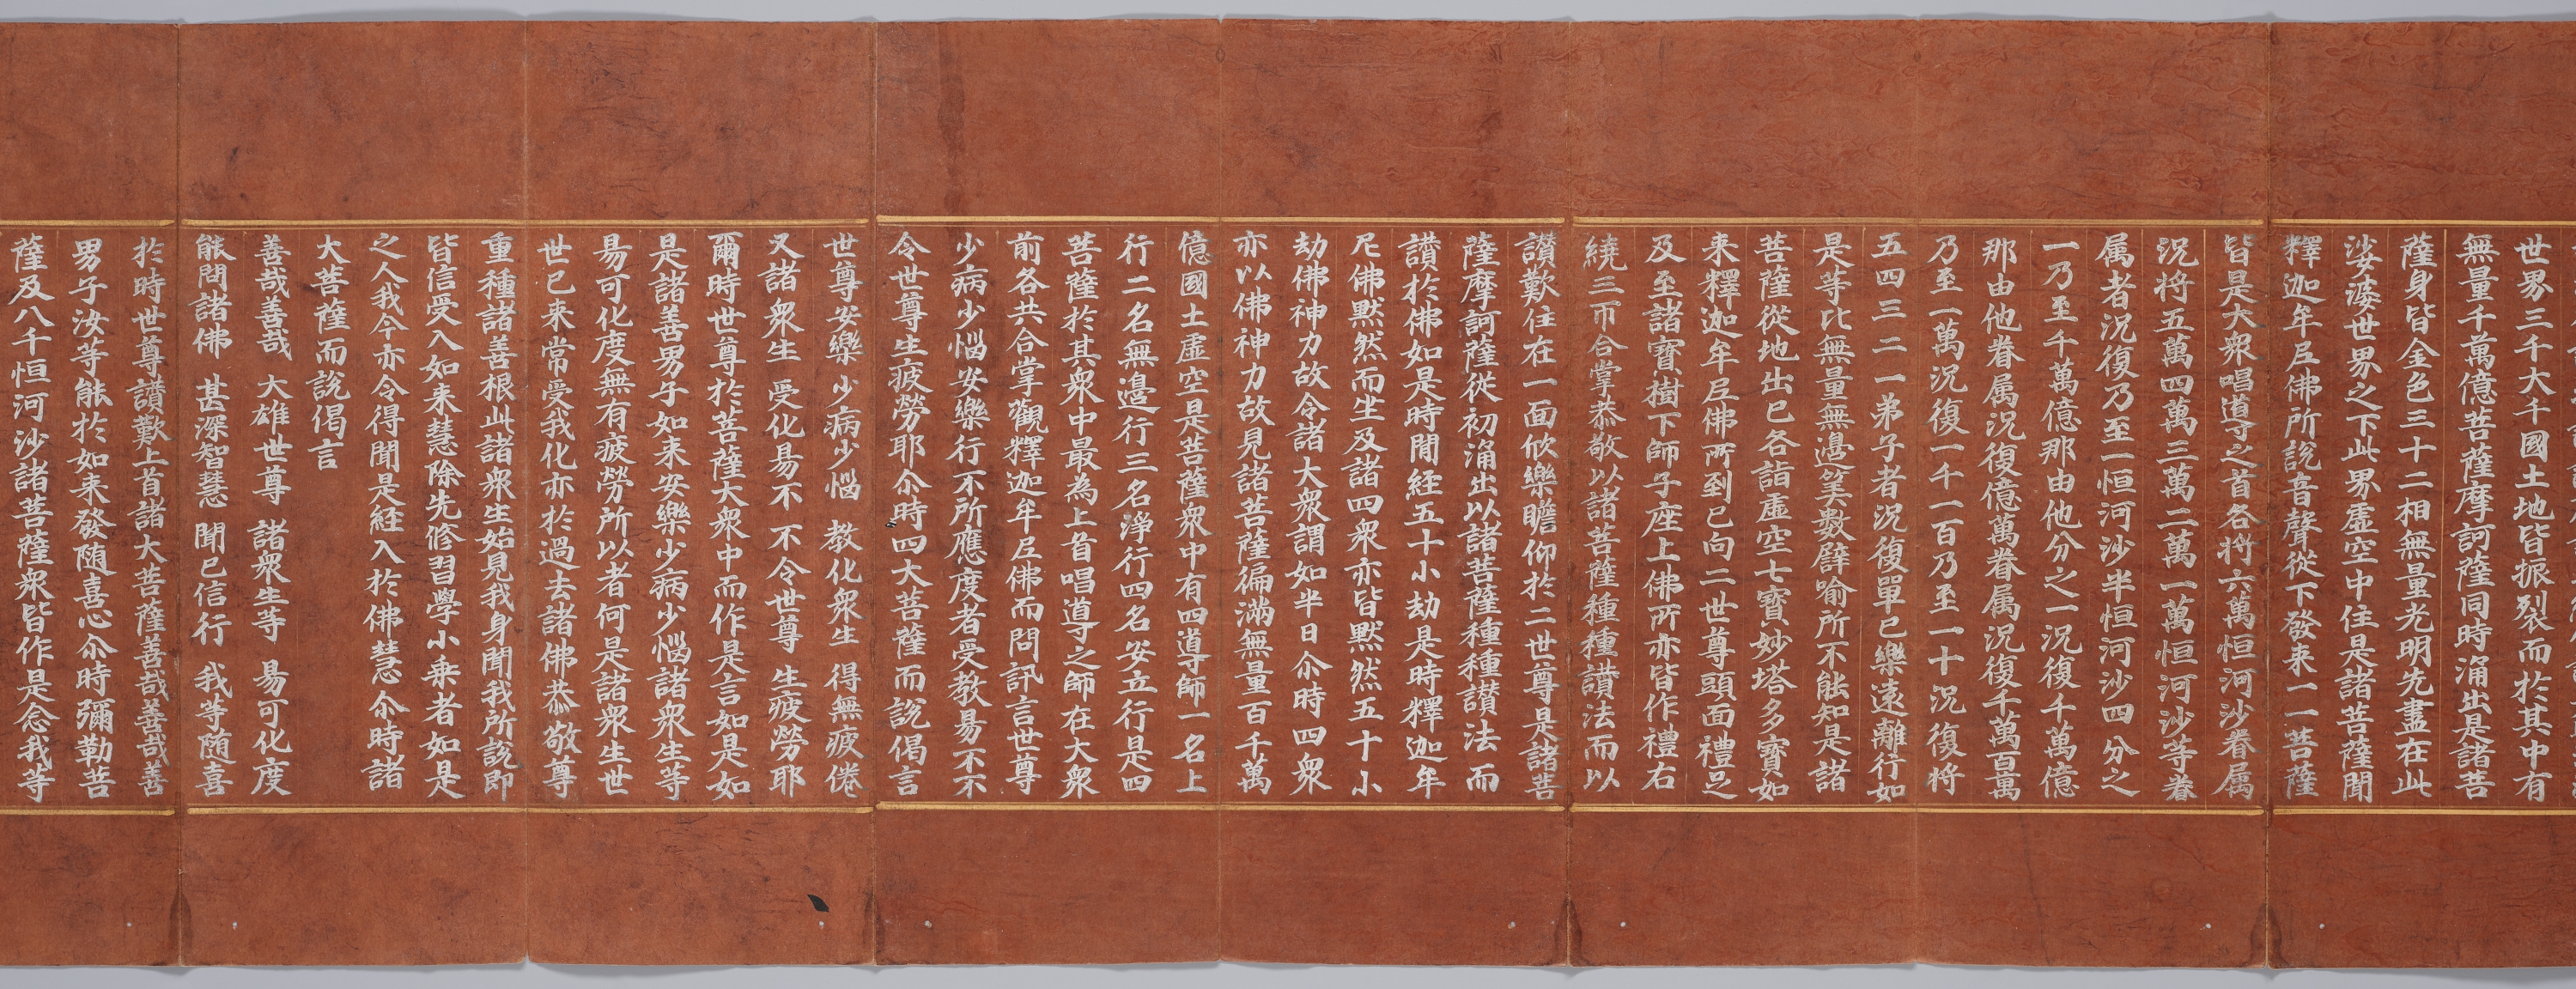 世界三千大千國土地皆振裂而於其中有
無量千萬億菩薩摩訶薩同時涌出是諸菩
薩身皆金色三十二相無量光明先盡在此
娑婆世界之下此界虛空中住是諸菩薩聞
釋迦牟尼佛所說音聲從下發来一一菩薩
皆是大衆唱導之首各将六萬恒河沙眷属
況将五萬四萬三萬二萬一萬恒河沙等眷
属者況復乃至一恒河沙半恒河沙四分之
一乃至千萬億那由他分之一況復千萬億
那由他眷属況復億萬眷属況復千萬百萬
乃至一萬況復一千一百乃至一十況復将
五四三二一弟子者況復單已樂遠離行如
是等比無量無邊筭數辟喻所不能知是諸
菩薩從地出已各詣虛空七寳妙塔多寳如
来釋迦牟尼佛所到已向二世尊頭面禮足
及至諸寳樹下師子座上佛所亦皆作禮右
繞三帀合掌恭敬以諸菩薩種種讃法而以
讃歎住在一面欣樂瞻仰於二世尊是諸菩
薩摩訶薩從初涌出以諸菩薩種種讃法而
讃於佛如是時間経五十小劫是時釋迦牟
尼佛黙然而坐及諸四衆亦皆黙然五十小
劫佛神力故令諸大衆謂如半日尒時四衆
亦以佛神力故見諸菩薩徧滿無量百千萬
億國土虛空是菩薩衆中有四導師一名上
行二名無邊行三名淨行四名安立行是四
菩薩於其衆中最為上首唱導之師在大衆
前各共合掌觀釋迦牟尼佛而問訊言世尊
少病少惱安樂行不所應度者受教易不不
令世尊生疲勞耶尒時四大菩薩而說偈言
世尊安樂 少病少惱 教化衆生 得無疲倦
又諸衆生 受化易不 不令世尊 生疲勞耶
爾時世尊於菩薩大衆中而作是言如是如
是諸善男子如来安樂少病少惱諸衆生等
易可化度無有疲勞所以者何是諸衆生世
世已来常受我化亦於過去諸佛恭敬尊
重種諸善根此諸衆生始見我身聞我所說即
皆信受入如来慧除先修習學小乗者如是
之人我今亦令得聞是経入於佛慧尒時諸
大菩薩而說偈言
善哉善哉 大雄世尊 諸衆生等 易可化度
能問諸佛 甚深智慧 聞已信行 我等随喜
於時世尊讃歎上首諸大菩薩善哉善哉善
男子汝等能於如来發随喜心尒時彌勒菩
薩及八千恒河沙諸菩薩衆皆作是念我等